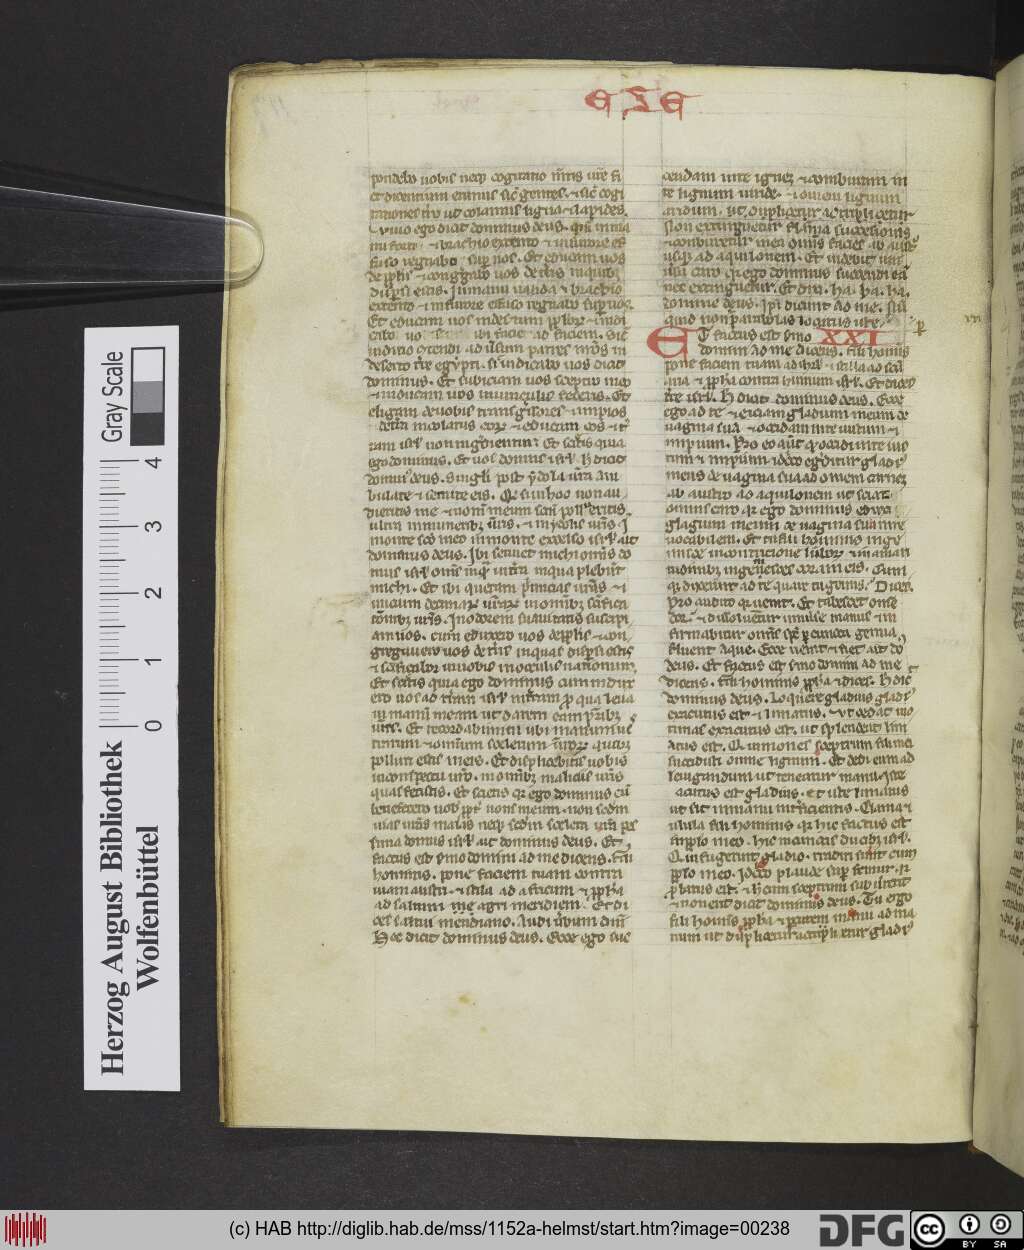 ESE
pondebo vobis neq cogitatio mtis vre fi
et dicentium erimus sic gentes ⁊ sic cogi
tationes tre ut colamus ligna ⁊ lapides.
vivo ego dicit dominus deus. qm in ma
nu forti ⁊ brachio extento ⁊ in furore ef
fuso regnabo sup vos. Et educam vos
de pplis ⁊ congregabo vos de tris in quibz
dispsi estis. In manu valida ⁊ brachio
extento ⁊ in furore effuso regnabo sup vos.
Et educam vos in desertum pplorz ⁊ iudi
cabo vos ibi facie ad faciem. Sic
iudicio contendi ad usum patres vros in
deserto tre egypti. si iudicabo vos dicit
dominus. Et subiciam vos sceptro meo
⁊ inducam vos in vinculis federis. Et
eligam de vobis transgssores ⁊ impios
de tra incolatus eorz ⁊ educam eos ⁊ tr
ram isrl non ingredientur. Et scietis quia
ego dominus. Et vos domus isrl. H dicit
dominus deus. Singli post ydola vra am
bulate ⁊ servite eis. Qd si in hoc non au
dieritis me ⁊ nomen meum scm pollueritis
ultra in muneribz vris ⁊ in ydolis vris. I
monte sco meo in monte excelso isrl ait
dominus deus. Ibi serviet michi omis do
mus isrl omis inq in terra in qua placebunt
michi. Et ibi queram primicias vras ⁊ i
nicium decimarz vrarz in omibz scifica
tionibz vris. In odorem suavitatis suscipi
am vos. cum eduxero vos de pplis ⁊ con
gregavero vos de tris in quas dispsi estis
⁊ scificabor in vobis in oculis nationum.
Et scietis quia ego dominus cum induxe
ro vos ad tram isrl in terram p qua levavi
manum meam ut darem eam patribz
vris. Et recordabimini ibi viarum ves
trarum ⁊ omnium scelerum vrorz quibz
polluti estis in eis. Et displicebitis vobis
in conspectu vro. in omibz maliciis vris
quas fecistis. Et scietis qr ego dominus cu
benefecero vob ppt nomen meum. non scdm
vias vras malas neq scdm scelera vra pes
sima domus isrl ait dominus deus. Et
factus est smo domini ad me dicens. fili
hominis. pone faciem tuam contra
viam austri ⁊ stilla ad africum ⁊ ppha
ad saltum agri meridiani. Et di
ces saltui meridiano. Audi verbum dni
Hec dicit dominus deus. Ecce ego suc
cendam in te ignez ⁊ comburam in
te lignum viride ⁊ omne lignum
aridum. 
sion extinguetur flama successionis
⁊ comburetur in ea omis facies ab austro
usq ad aquilonem. Et videbit uni
versa caro qr ego dominus succendi ea
nec extinguetur. Et dixi. ha. ha. ha.
domine deus. ipi dicunt ad me. 
quid non p parabolas loquitur iste.
ET factus est smo XXI
domini ad me dicens. fili hominis
pone faciem tuam ad ihrlm ⁊ stilla ad sctu
aria ⁊ ppha contra humum isrl. Et dices
tre isrl. H dicit dominus deus. Ecce
ego ad te ⁊ eiciam gladium meum de
vagina sua ⁊ occidam in te iustum ⁊
impium. Pro eo aut qd occidi in te ius
tum ⁊ impium ideo egredietur gladius
meus de vagina sua ad omnem carnez
ab austro ad aquilonem ut sciat
omnis caro qr ego dominus eduxi
gladium meum de vagina sua irre
vocabilem. Et tu fili hominis inge
misce in contritione lumborz ⁊ in amari
tudinibz ingemisces coram eis. Cum
qz dixerint ad te quare tu gemis. Dices.
Pro auditu qr venit. Et tabescet omne
cor ⁊ dissolventur universe manus ⁊ in
firmabitur omis sps ⁊ p cuncta genua
fluent aque. Ecce venit ⁊ fiet ait do
deus. Et factus est smo domini ad me
dicens. fili hominis ppha ⁊ dices. H dicit
dominus deus. Loquere gladius gladius
exacutus est ⁊ limatus. Ut cedat vic
timas exacutus est. ut splendeat lim
atus est. Qui moves sceptrum filii mei
succidisti omne lignum. Et dedi eum ad
levigandum ut teneatur manu. iste
acutus est gladius. et iste limatus
ut sit in manu interficientis. Clama ⁊
ulula fili hominis qr hic factus est
in pplo meo. hic in cunctis ducibz isrl.
Qui fugerant gladio. traditi sunt cum
pplo meo. Idcirco plaude sup femur. qr
pbatus est. ⁊ h cum sceptrum subvterit
⁊ non erit dicit dominus deus. Tu ergo
fili hominis ppha ⁊ pcute manu ad ma
num ut duplicetur ac triplicetur gladius
Gray Scale
0 1 2 3 4
Herzog August Bibliothek
Wolfenbüttel
(c) HAB http://diglib.hab.de/mss/1152a-helmst/start.htm?image=00238
DFG
cc BY SA